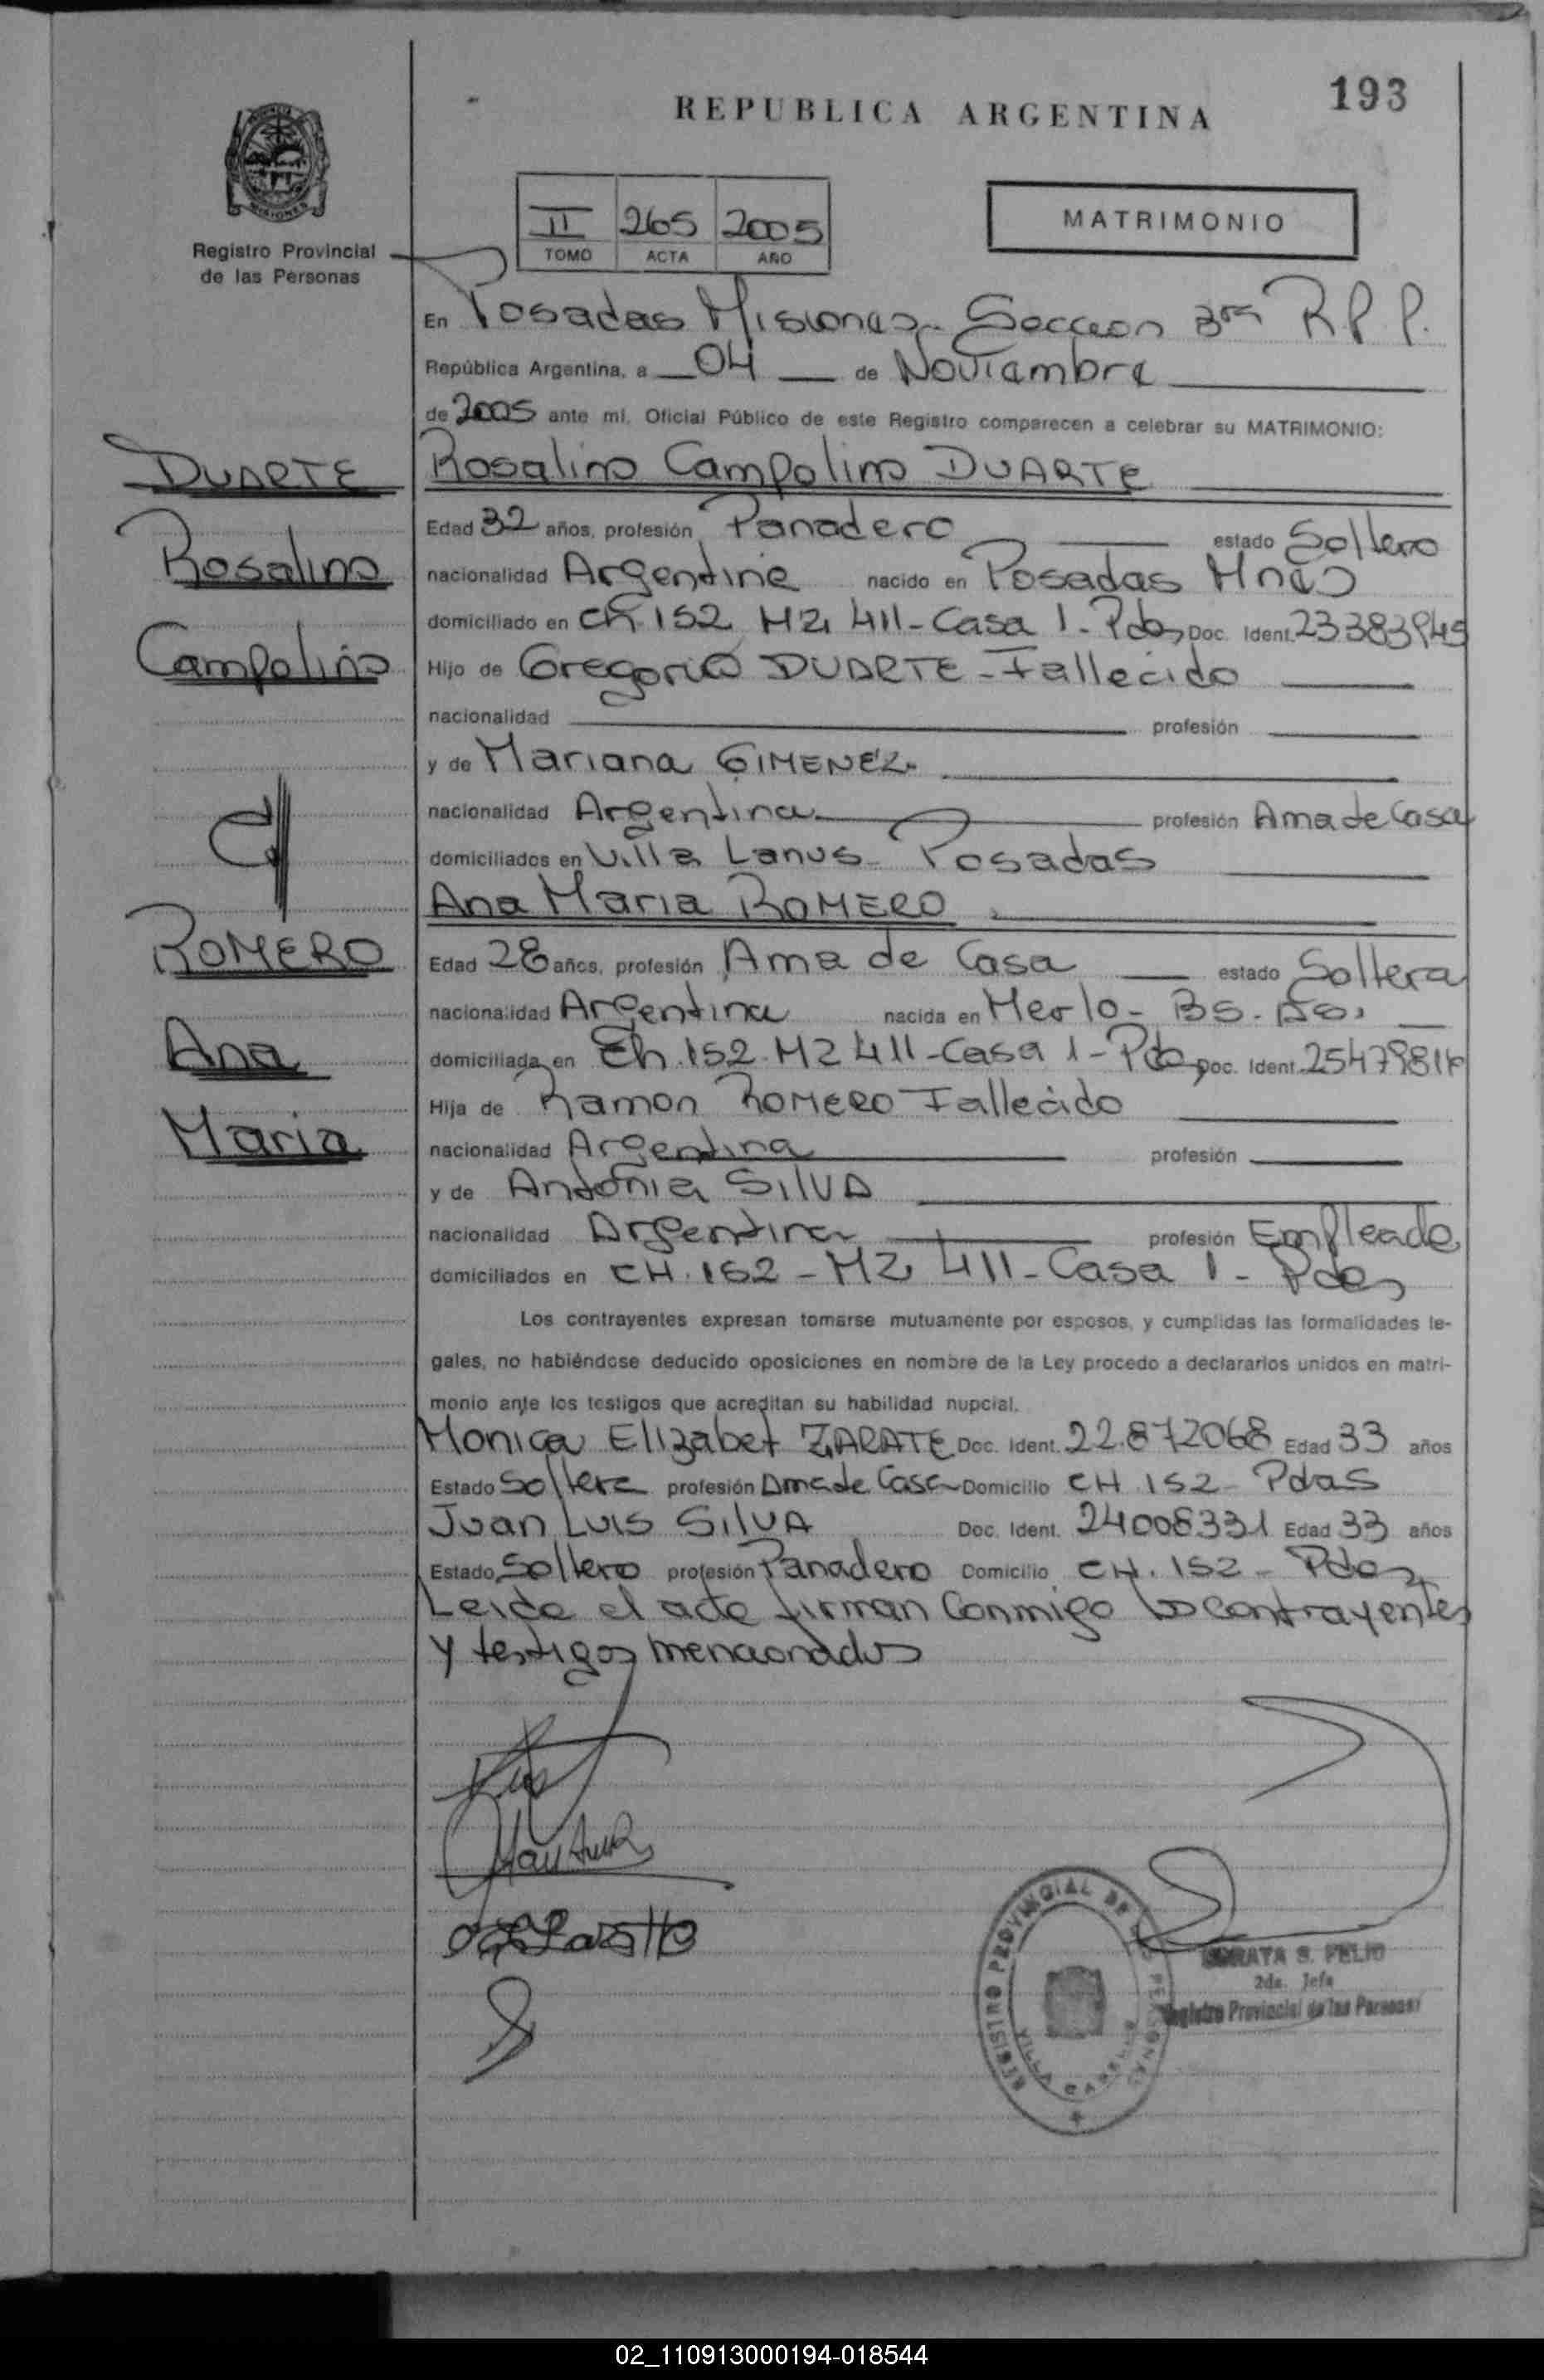 193
REPUBLICA ARGENTINA
MISIONES
Registro Provincial
de las Personas
II 265 2005
TOMO ACTA AÑO
MATRIMONIO
En Posadas Misiones - Seccion 3ra R.P.P.
República Argentina, a 04 de Noviembre
de 2005 ante mí, Oficial Público de este Registro comparecen a celebrar su MATRIMONIO:
DUARTE
Rosalino
Campolino
Rosalino Campolino DUARTE
Edad 32 años, profesión Panadero estado Soltero
nacionalidad Argentina nacido en Posadas Mnes
domiciliado en Ch. 152 Mz 411 - Casa 1 - Pdas Doc. Ident. 23383945
Hijo de Gregorio DUARTE - Fallecido
nacionalidad profesión
y de Mariana GIMENEZ
nacionalidad Argentina profesión Ama de Casa
domiciliados en Villa Lanus - Posadas
ROMERO
Ana
Maria
Ana Maria ROMERO
Edad 28 años, profesión Ama de Casa estado Soltera
nacionalidad Argentina nacida en Merlo - Bs. As.
domiciliada en Ch. 152 - Mz 411 - Casa 1 - Pdas Doc. Ident.
Hija de Ramon ROMERO Fallecido
nacionalidad Argentina profesión
y de Antonia SILVA
nacionalidad Argentina profesión Empleada
domiciliados en CH. 152 - Mz 411 - Casa 1 - Pdas
Los contrayentes expresan tomarse mutuamente por esposos, y cumplidas las formalidades le-
gales, no habiéndose deducido oposiciones en nombre de la Ley procedo a declararlos unidos en matri-
monio ante los testigos que acreditan su habilidad nupcial.
Monica Elizabet ZARATE Doc. Ident. 22.872068 Edad 33 años
Estado Soltera profesión Ama de Casa Domicilio CH 152 - Pdas
Juan Luis SILVA Doc. Ident. 24008331 Edad 33 años
Estado Soltero profesión Panadero Domicilio CH. 152 - Pdas
Leida el acta firman conmigo los contrayentes
y testigos mencionados
REGISTRO PROVINCIAL DE LAS PERSONAS
VILLA
S. FELIO
2da. Jefa
Registro Provincial de las Personas
02_110913000194-018544